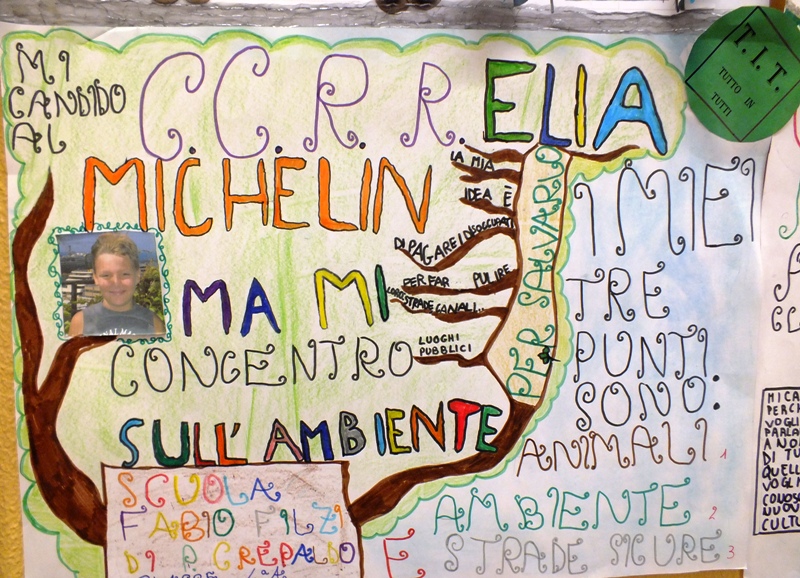 MI
CANDIDO
AL
C.C.R.R. ELIA
MICHELIN
MA MI
CONCENTRO
SULL'AMBIENTE
PER SALVARLO
LA MIA
IDEA È
DI PAGARE I DISOCCUPATI
PER FAR PULIRE
STRADE CANALI...
LUOGHI
PUBBLICI
I MIEI
TRE
PUNTI
SONO:
ANIMALI 1
AMBIENTE 2
E STRADE SICURE 3
SCUOLA
FABIO FILZI
DI P. CREPALDO
T.I.T.
TUTTO
IN
TUTTI
MI CA
PERCI
VOGLI
PARLA
A NOI
DI TU
QUELL
VOGLI
CONOS
NUOV
CULTU